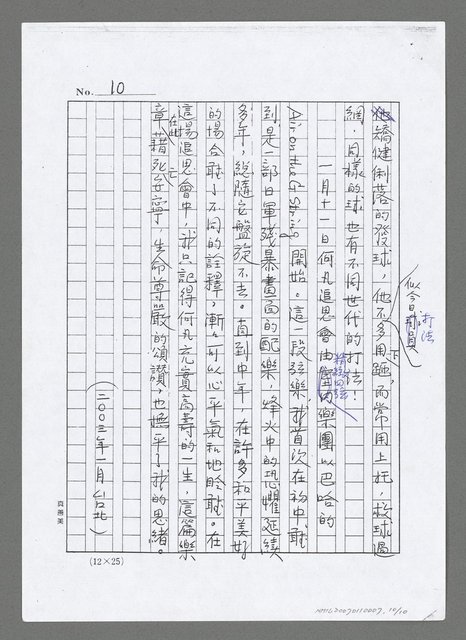 No. 10
他矯健俐落的發球，他不多用下蹠，而常用上托，救球過
似今日打法
網，同樣的球也有不同世代的打法！
一月十一日何凡追思會由室內樂團以巴哈的
Air on the G String 開始。這一段弦樂，我首次在初中聽
到是一部日軍殘暴畫面的配樂，烽火中的恐懼延續
多年，總隨它盤旋不去。直到中年，在許多和平美好
的場合聽了不同的詮釋，漸漸可以心平氣和地聆聽。在
這場追思會中，我只記得何凡充實高壽的一生，這篇樂
章在此藉死亡安寧，生命尊嚴的頌讚，也撫平了我的思緒。
（二〇〇三年一月，台北）
(12×25)